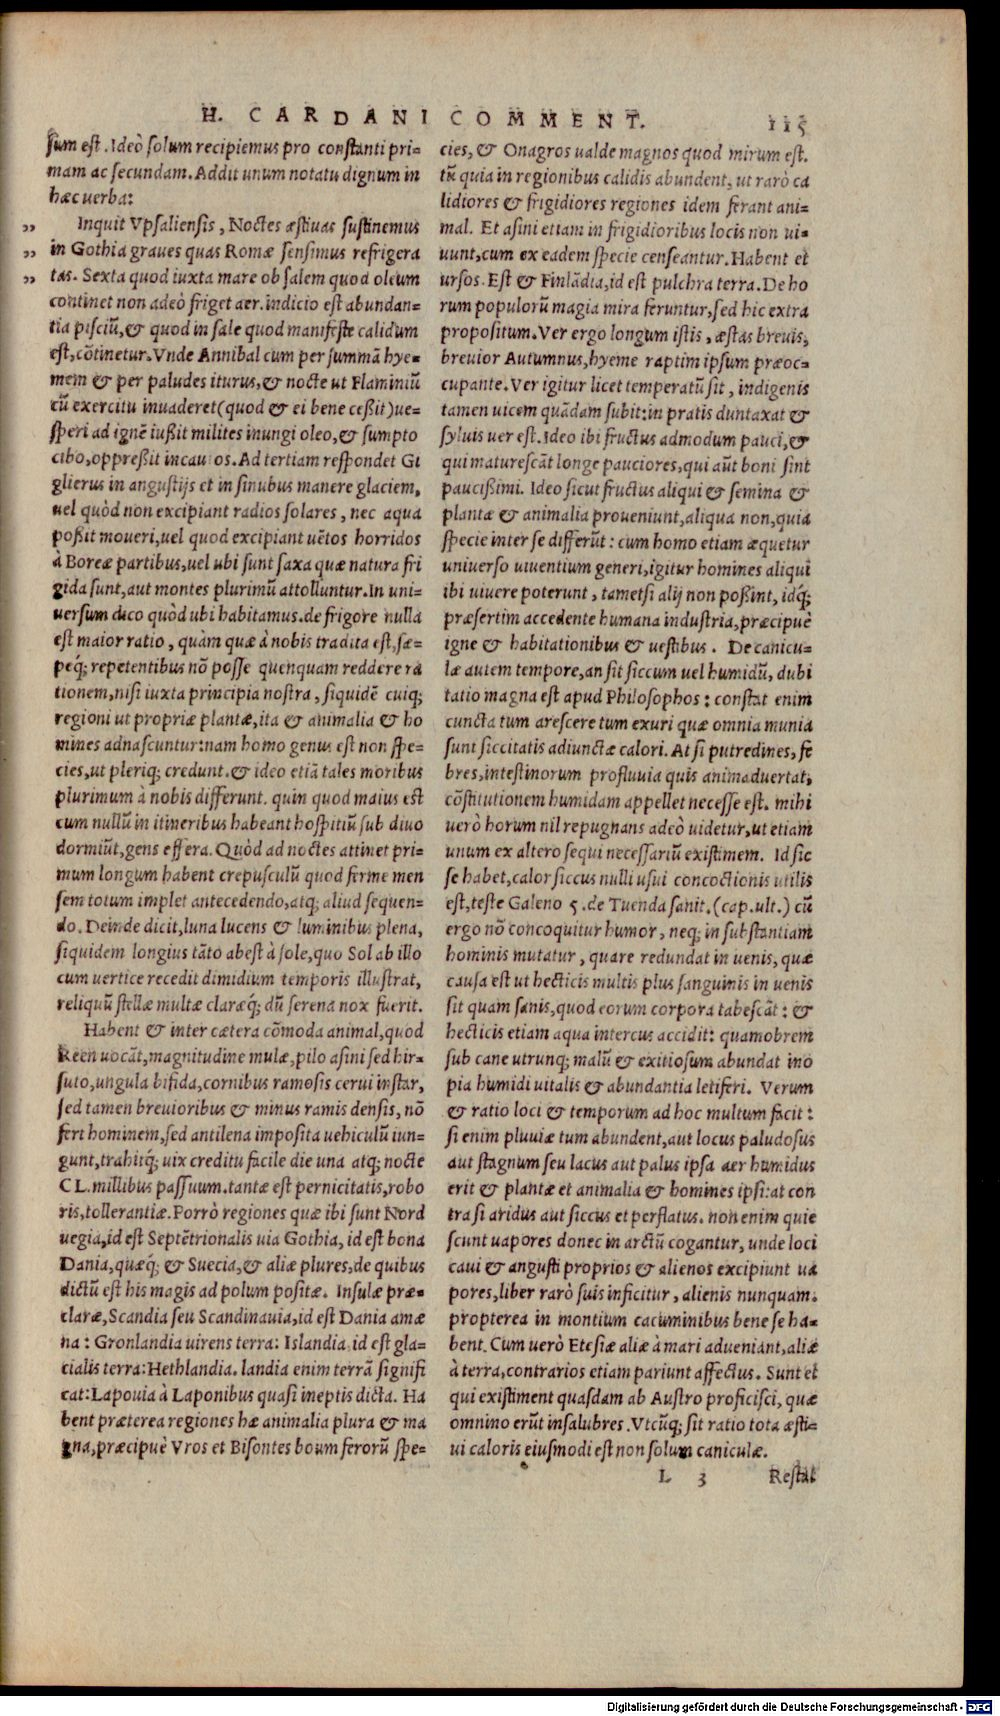 H. CARDANI COMMENT. 115
sum est. Ideò solum recipiemus pro constanti pri=
mam ac secundam. Addit unum notatu dignum in
hæc uerba:
„ Inquit Vpsaliensis, Noctes æstiuas sustinemus
„ in Gothia graues quas Romæ sensimus refrigera
„ tas. Sexta quod iuxta mare ob salem quod oleum
continet non adeò friget aer. indicio est abundan=
tia pisciũ, & quod in sale quod manifestè calidum
est, cõtinetur. Vnde Annibal cum per summã hye=
mem & per paludes iturus, & nocte ut Flaminiũ
cũ exercitu inuaderet (quod & ei bene ceßit) ue=
speri ad ignẽ iußit milites inungi oleo, & sumpto
cibo, oppreßit incautos. Ad tertiam respondet Gi
glierus in angustijs et in sinubus manere glaciem,
uel quòd non excipiant radios solares, nec aqua
poßit moueri, uel quod excipiant uẽtos horridos
à Boreæ partibus, uel ubi sunt saxa quæ natura fri
gida sunt, aut montes plurimũ attolluntur. In uni=
uersum dico quòd ubi habitamus. de frigore nulla
est maior ratio, quàm quæ à nobis tradita est, sæ=
peq́; repetentibus nõ posse quenquam reddere ra
tionem, nisi iuxta principia nostra, siquidẽ cuiq;
regioni ut propriæ plantæ, ita & animalia & ho
mines adnascuntur: nam homo genus est non spe=
cies, ut pleriq; credunt. & ideo etiã tales moribus
plurimum à nobis differunt. quin quod maius est
cum nullũ in itineribus habeant hospitiũ sub diuo
dormiũt, gens effera. Quòd ad noctes attinet pri=
mum longum habent crepusculũ quod ferme men
sem totum implet antecedendo, atq; aliud sequen=
do. Deinde dicit, luna lucens & luminibus plena,
siquidem longius tãto abest à sole, quo Sol ab illo
cum vertice recedit dimidium temporis illustrat,
reliquũ stellæ multæ claræq́; dũ serena nox fuerit.
Habent & inter cætera cõmoda animal, quod
Reen uocãt, magnitudine mulæ, pilo asini sed hir=
suto, ungula bifida, cornibus ramosis cerui instar,
sed tamen breuioribus & minus ramis densis, nõ
fert hominem, sed antilena imposita uehiculũ iun=
gunt, trahitq́; uix creditu facile die una atq; nocte
CL. millibus passuum. tantæ est pernicitatis, robo
ris, tollerantiæ. Porrò regiones quæ ibi sunt Nord
uegia, id est Septẽtrionalis uia Gothia, id est bona
Dania, quæq́; & Suecia, & aliæ plures, de quibus
dictũ est his magis ad polum positæ. Insulæ præ=
claræ, Scandia seu Scandinauia, id est Dania amæ
na: Gronlandia uirens terra: Islandia id est gla=
cialis terra: Hethlandia. landia enim terrã signifi
cat: Lapouia à Laponibus quasi ineptis dicta. Ha
bent præterea regiones hæ animalia plura & ma
gna, præcipuè Vros et Bisontes boum ferorũ spe=
cies, & Onagros ualde magnos quod mirum est.
tũ quia in regionibus calidis abundent, ut rarò ca
lidiores & frigidiores regiones idem ferant ani=
mal. Et asini etiam in frigidioribus locis non ui=
uunt, cum ex eadem specie censeantur. Habent et
ursos. Est & Finlãdia, id est pulchra terra. De ho
rum populorũ magia mira feruntur, sed hic extra
propositum. Ver ergo longum istis, æstas breuis,
breuior Autumnus, hyeme raptim ipsum præoc=
cupante. Ver igitur licet temperatũ sit, indigenis
tamen uicem quãdam subit: in pratis duntaxat &
syluis uer est. Ideo ibi fructus admodum pauci, &
qui maturescãt longe pauciores, qui aũt boni sint
paucißimi. Ideo sicut fructus aliqui & semina &
plantæ & animalia proueniunt, aliqua non, quia
specie inter se differũt: cum homo etiam æquetur
uniuerso uiuentium generi, igitur homines aliqui
ibi uiuere poterunt, tametsi alij non poßint, idq́;
præsertim accedente humana industria, præcipuè
igne & habitationibus & uestibus. De canicu=
læ autem tempore, an sit siccum uel humidũ, dubi
tatio magna est apud Philosophos: constat enim
cuncta tum arescere tum exuri quæ omnia munia
sunt siccitatis adiunctæ calori. At si putredines, fe
bres, intestinorum profluuia quis animaduertat,
cõstitutionem humidam appellet necesse est. mihi
uerò horum nil repugnans adeò uidetur, ut etiam
unum ex altero sequi necessariũ existimem. Id sic
se habet, calor siccus nulli usui concoctionis utilis
est, teste Galeno 5. de Tuenda sanit. (cap. ult.) cũ
ergo nõ concoquitur humor, neq; in substantiam
hominis mutatur, quare redundat in uenis, quæ
causa est ut hecticis multis plus sanguinis in uenis
sit quam sanis, quod eorum corpora tabescãt: &
hecticis etiam aqua intercus accidit: quamobrem
sub cane utrunq; malũ & exitiosum abundat ino
pia humidi uitalis & abundantia letiferi. Verum
& ratio loci & temporum ad hoc multum facit:
si enim pluuiæ tum abundent, aut locus paludosus
aut stagnum seu lacus aut palus ipsa aer humidus
erit & plantæ et animalia & homines ipsi: at con
tra si aridus aut siccus et perflatus. non enim quie
scunt uapores donec in arctũ cogantur, unde loci
caui & angusti proprios & alienos excipiunt ua
pores, liber rarò suis inficitur, alienis nunquam.
propterea in montium cacuminibus bene se ha=
bent. Cum uerò Etesiæ aliæ à mari adueniant, aliæ
à terra, contrarios etiam pariunt affectus. Sunt et
qui existiment quasdam ab Austro proficisci, quæ
omnino erũt insalubres. Vtcũq; sit ratio tota æsti=
ui caloris eiusmodi est non solum caniculæ.
L 3 Restat
Digitalisierung gefördert durch die Deutsche Forschungsgemeinschaft - DFG